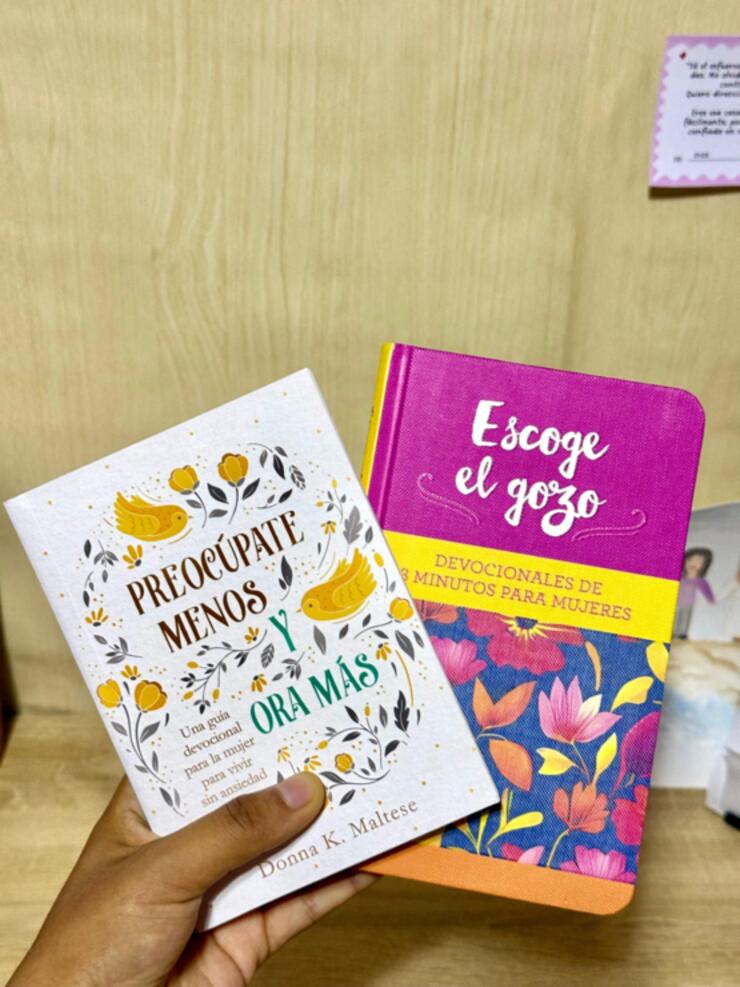 PREOCÚPATE
MENOS
Y
ORA MÁS
Una guía
devocional
para la mujer
para vivir
sin ansiedad
Donna K. Maltese
Escoge
el gozo
DEVOCIONALES DE
3 MINUTOS PARA MUJERES